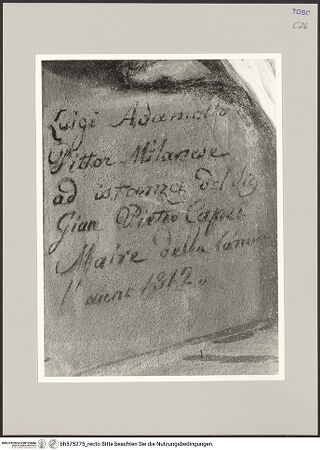 TOSC
C26
Luigi Adamollo
Pittor Milanese
ad istanza del Sig
Gian Pietro Capei
Maire della Comun
l'anno 1812
bh575275_recto Bitte beachten Sie die Nutzungsbedingungen.